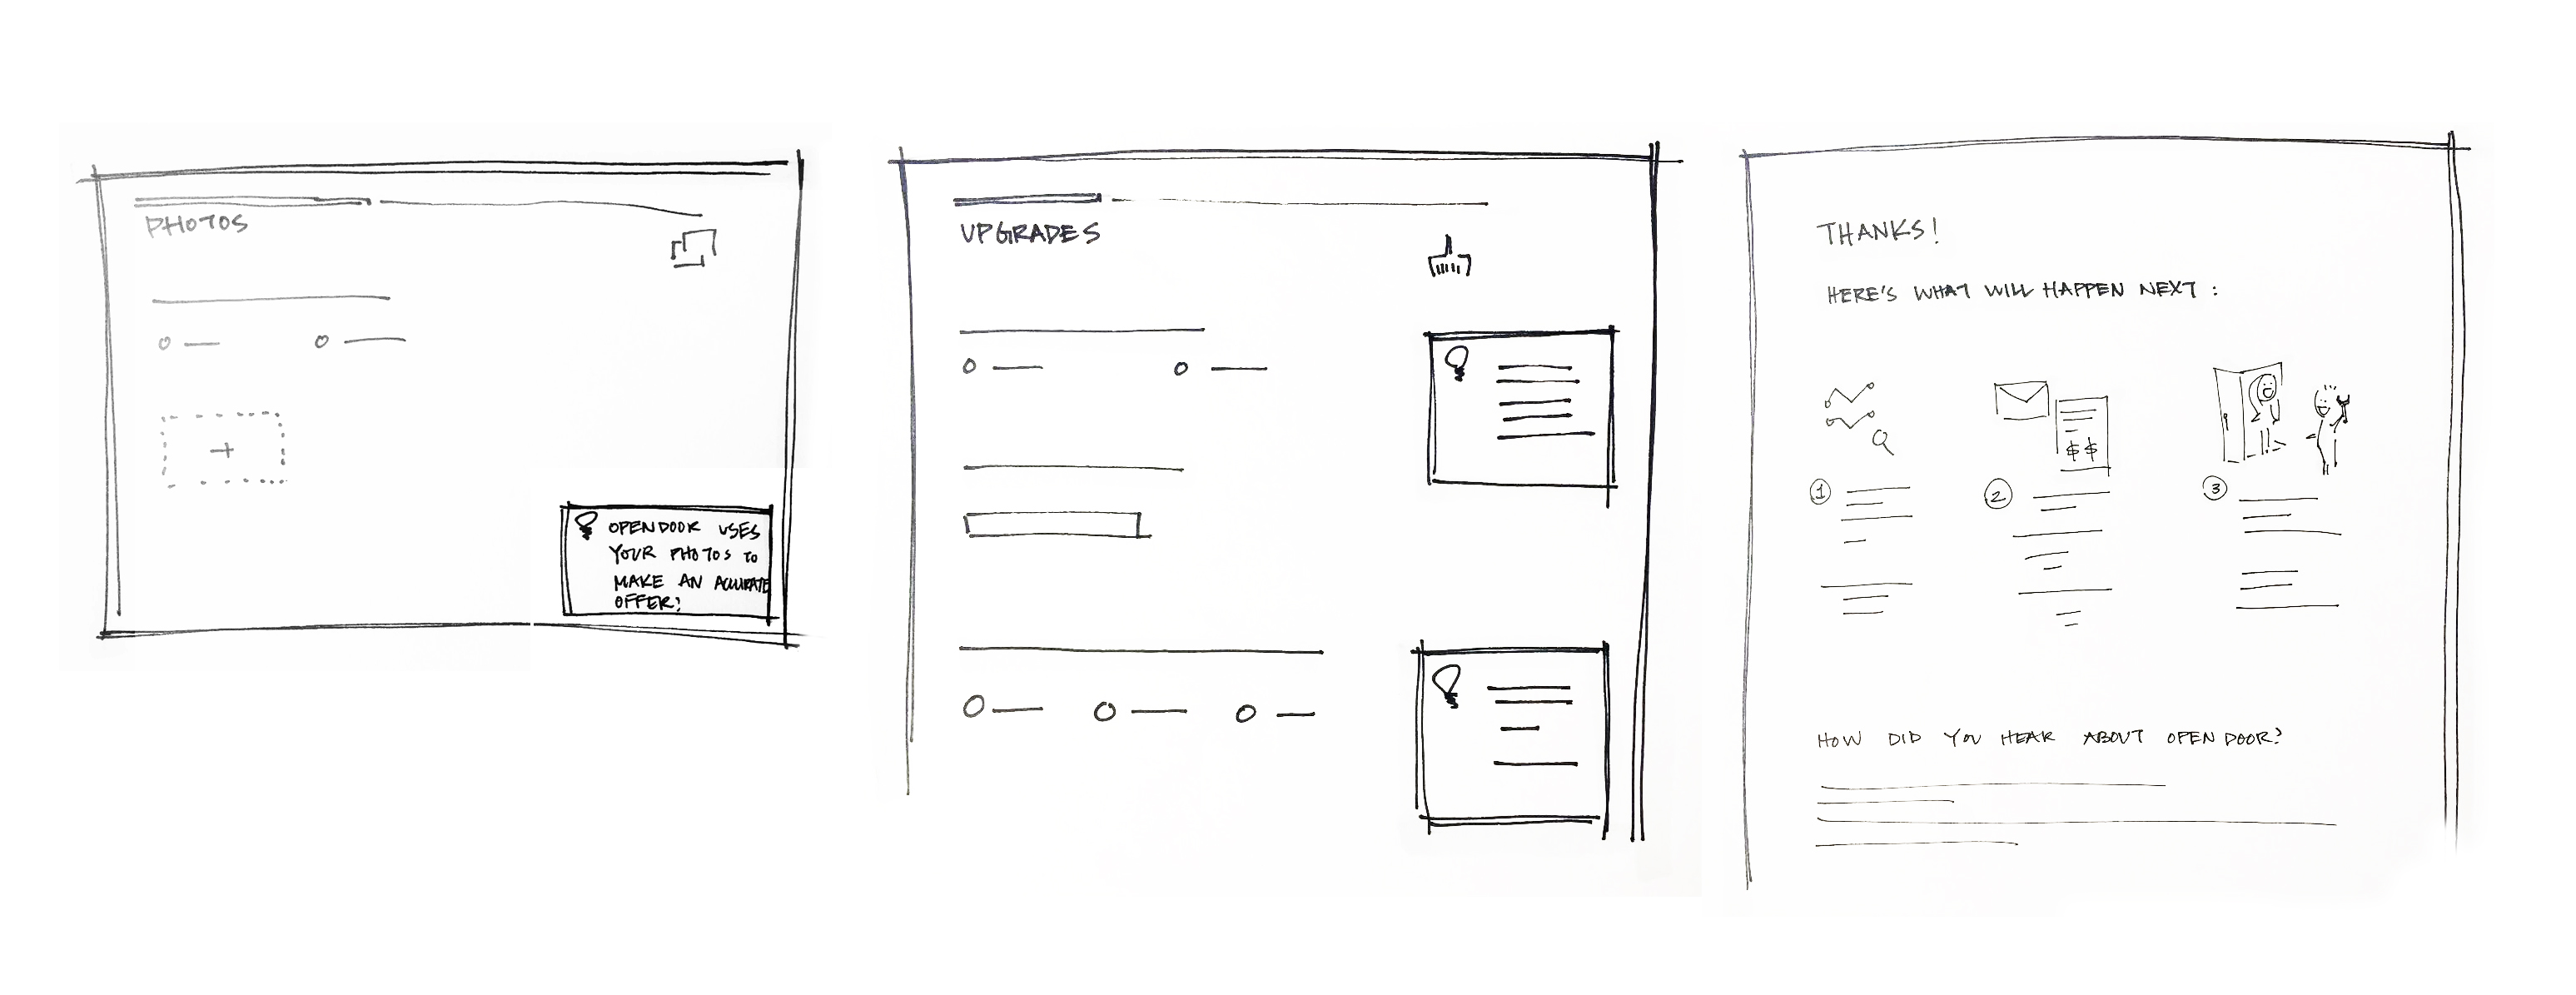 PHOTOS
OPENDOOR USES
YOUR PHOTOS TO
MAKE AN ACCURATE
OFFER!
UPGRADES
THANKS!
HERE'S WHAT WILL HAPPEN NEXT:
$$
1
2
3
HOW DID YOU HEAR ABOUT OPENDOOR?